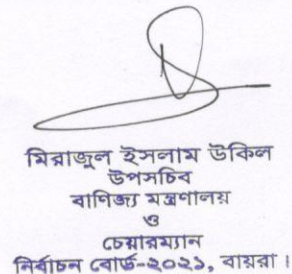 মিরাজুল ইসলাম উকিল
উপসচিব
বাণিজ্য মন্ত্রণালয়
ও
চেয়ারম্যান
নির্বাচন বোর্ড-২০২১, বায়রা।